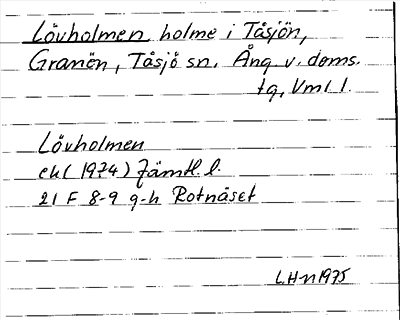 Lövholmen holme i Tåsjön,
Granön, Tåsjö sn. Ång. v. doms.
tg, Vml l.
Lövholmen
ek (1974) Jämtl. l.
21 F 8-9 g-h Rotnäset
L.H-n 1975